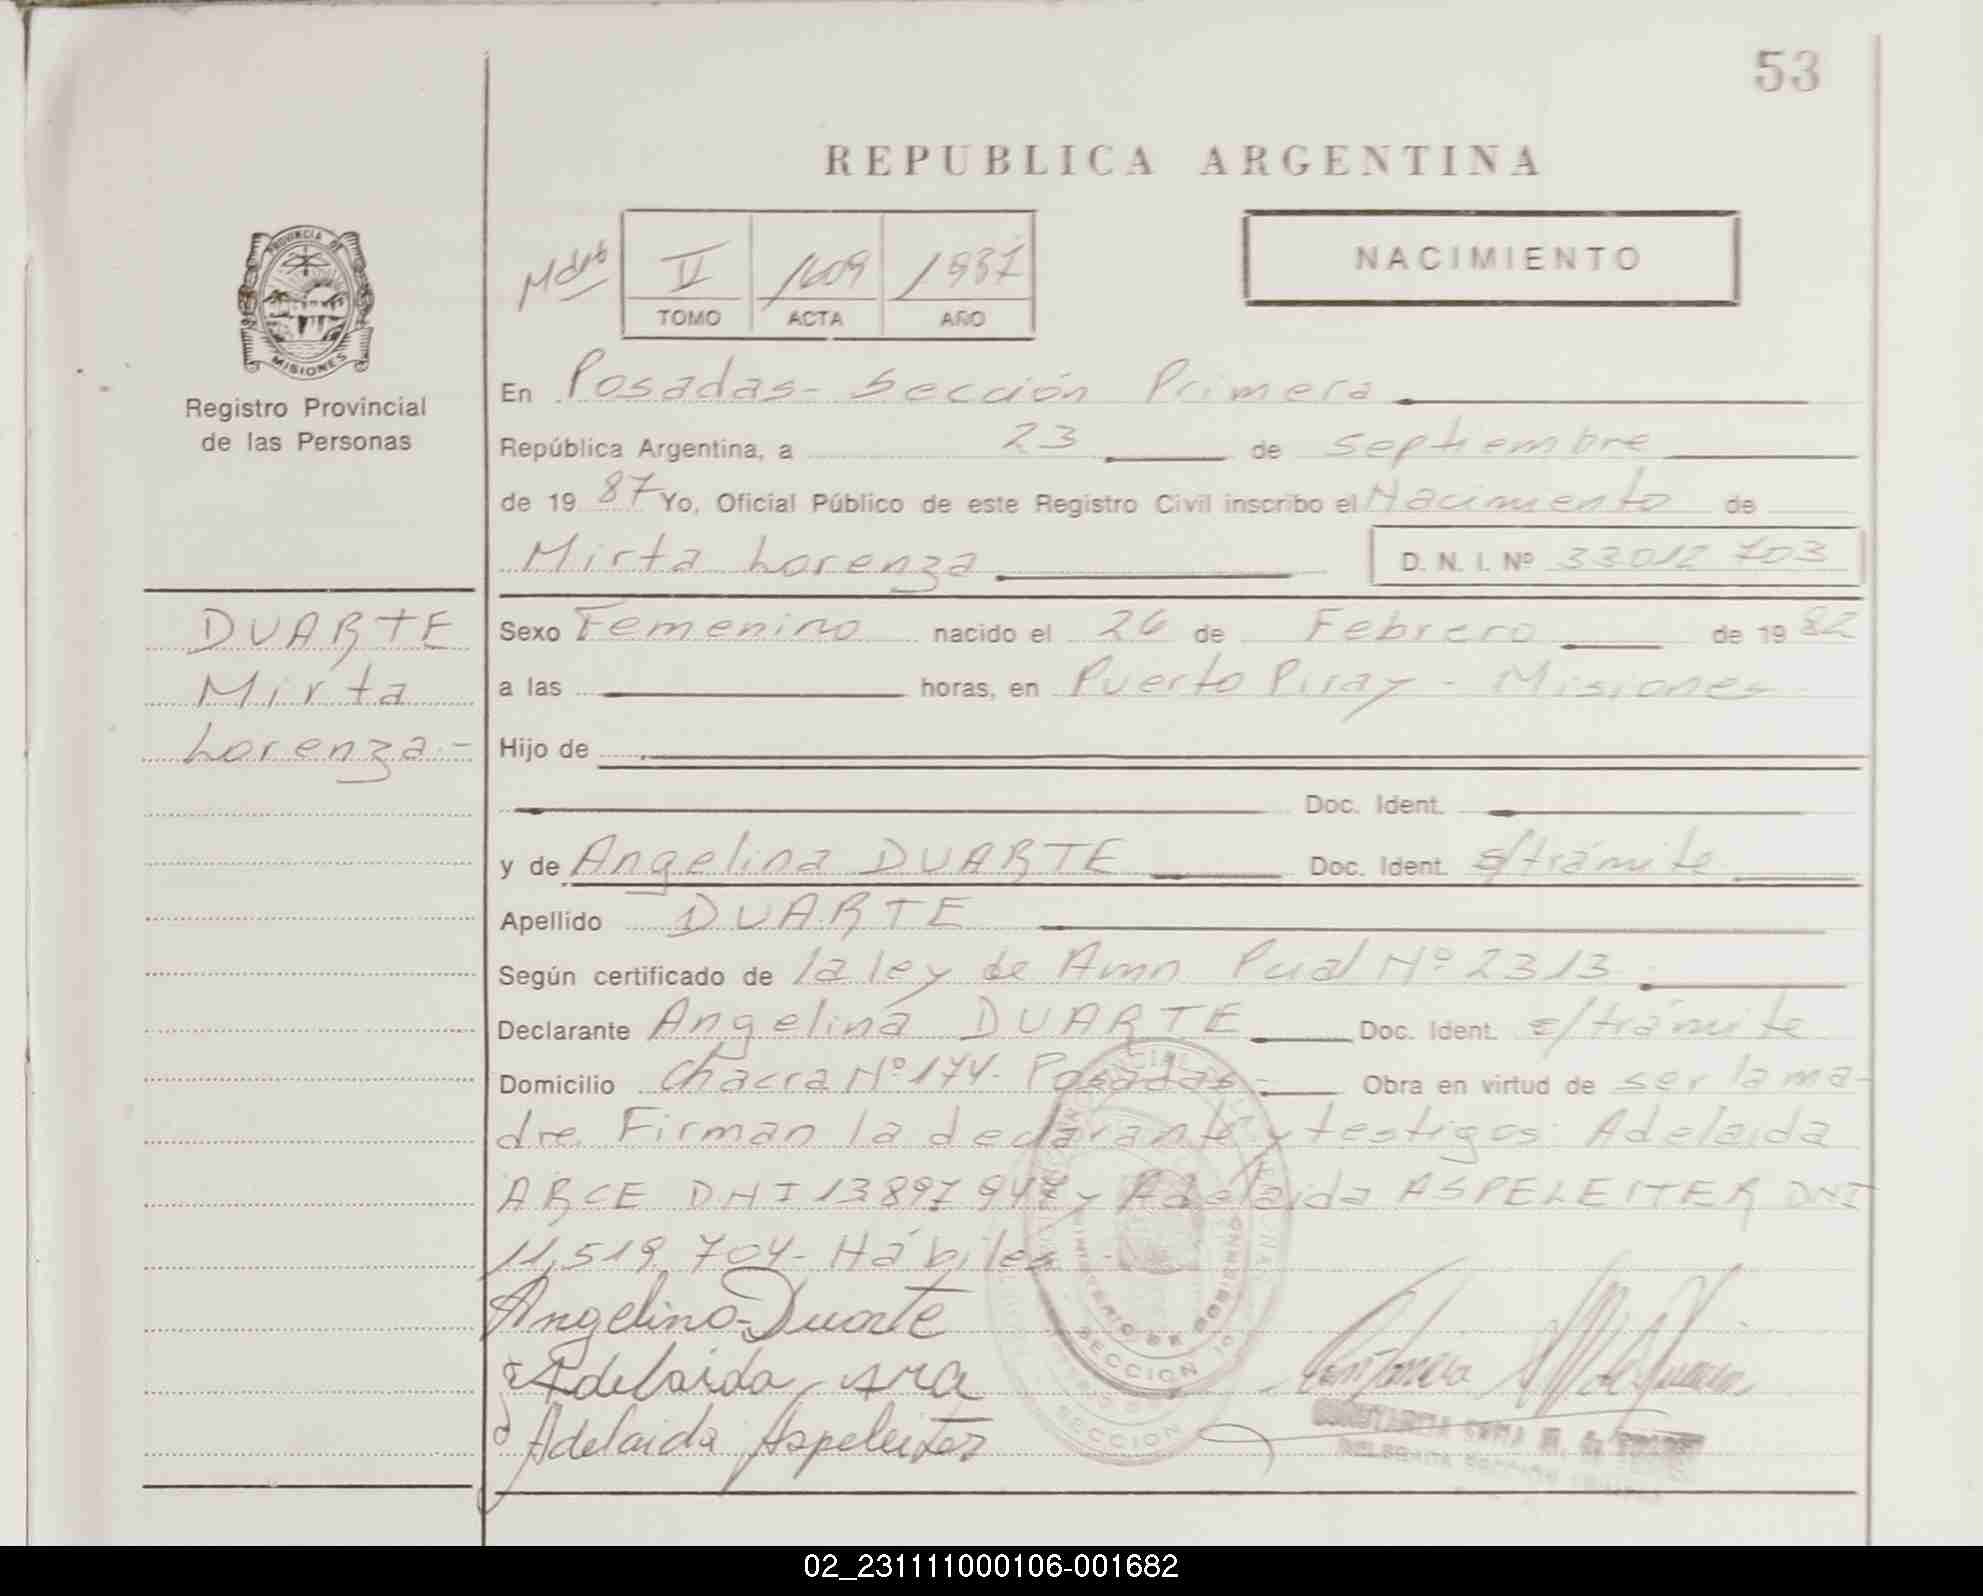 53
REPUBLICA ARGENTINA
II 1609 1987
TOMO ACTA AÑO
NACIMIENTO
PROVINCIA DE
MISIONES
Registro Provincial
de las Personas
DUARTE
Mirta
Lorenza.-
En Posadas- Sección Primera
República Argentina, a 23 de septiembre
de 19 87 Yo, Oficial Público de este Registro Civil inscribo el Nacimiento de
Mirta Lorenza D. N. I. Nº 33012 703
Sexo Femenino nacido el 26 de Febrero de 19 82
a las horas, en Puerto Piray - Misiones
Hijo de
Doc. Ident.
y de Angelina DUARTE Doc. Ident. s/trámite
Apellido DUARTE
Según certificado de la ley de Amn Pcial Nº 2313
Declarante Angelina DUARTE Doc. Ident. s/trámite
Domicilio Chacra Nº 174- Posadas- Obra en virtud de ser la ma-
dre. Firman la declarante y testigos: Adelaida
ARCE DNI 13.897 947 y Adelaida ASPELEITER DNI
11,519 704- Hábiles -
Angelina Duarte
Adelaida
Adelaida Aspeleiter
MINISTERIO DE GOBIERNO
SECCION 1º
SECCION
02_231111000106-001682